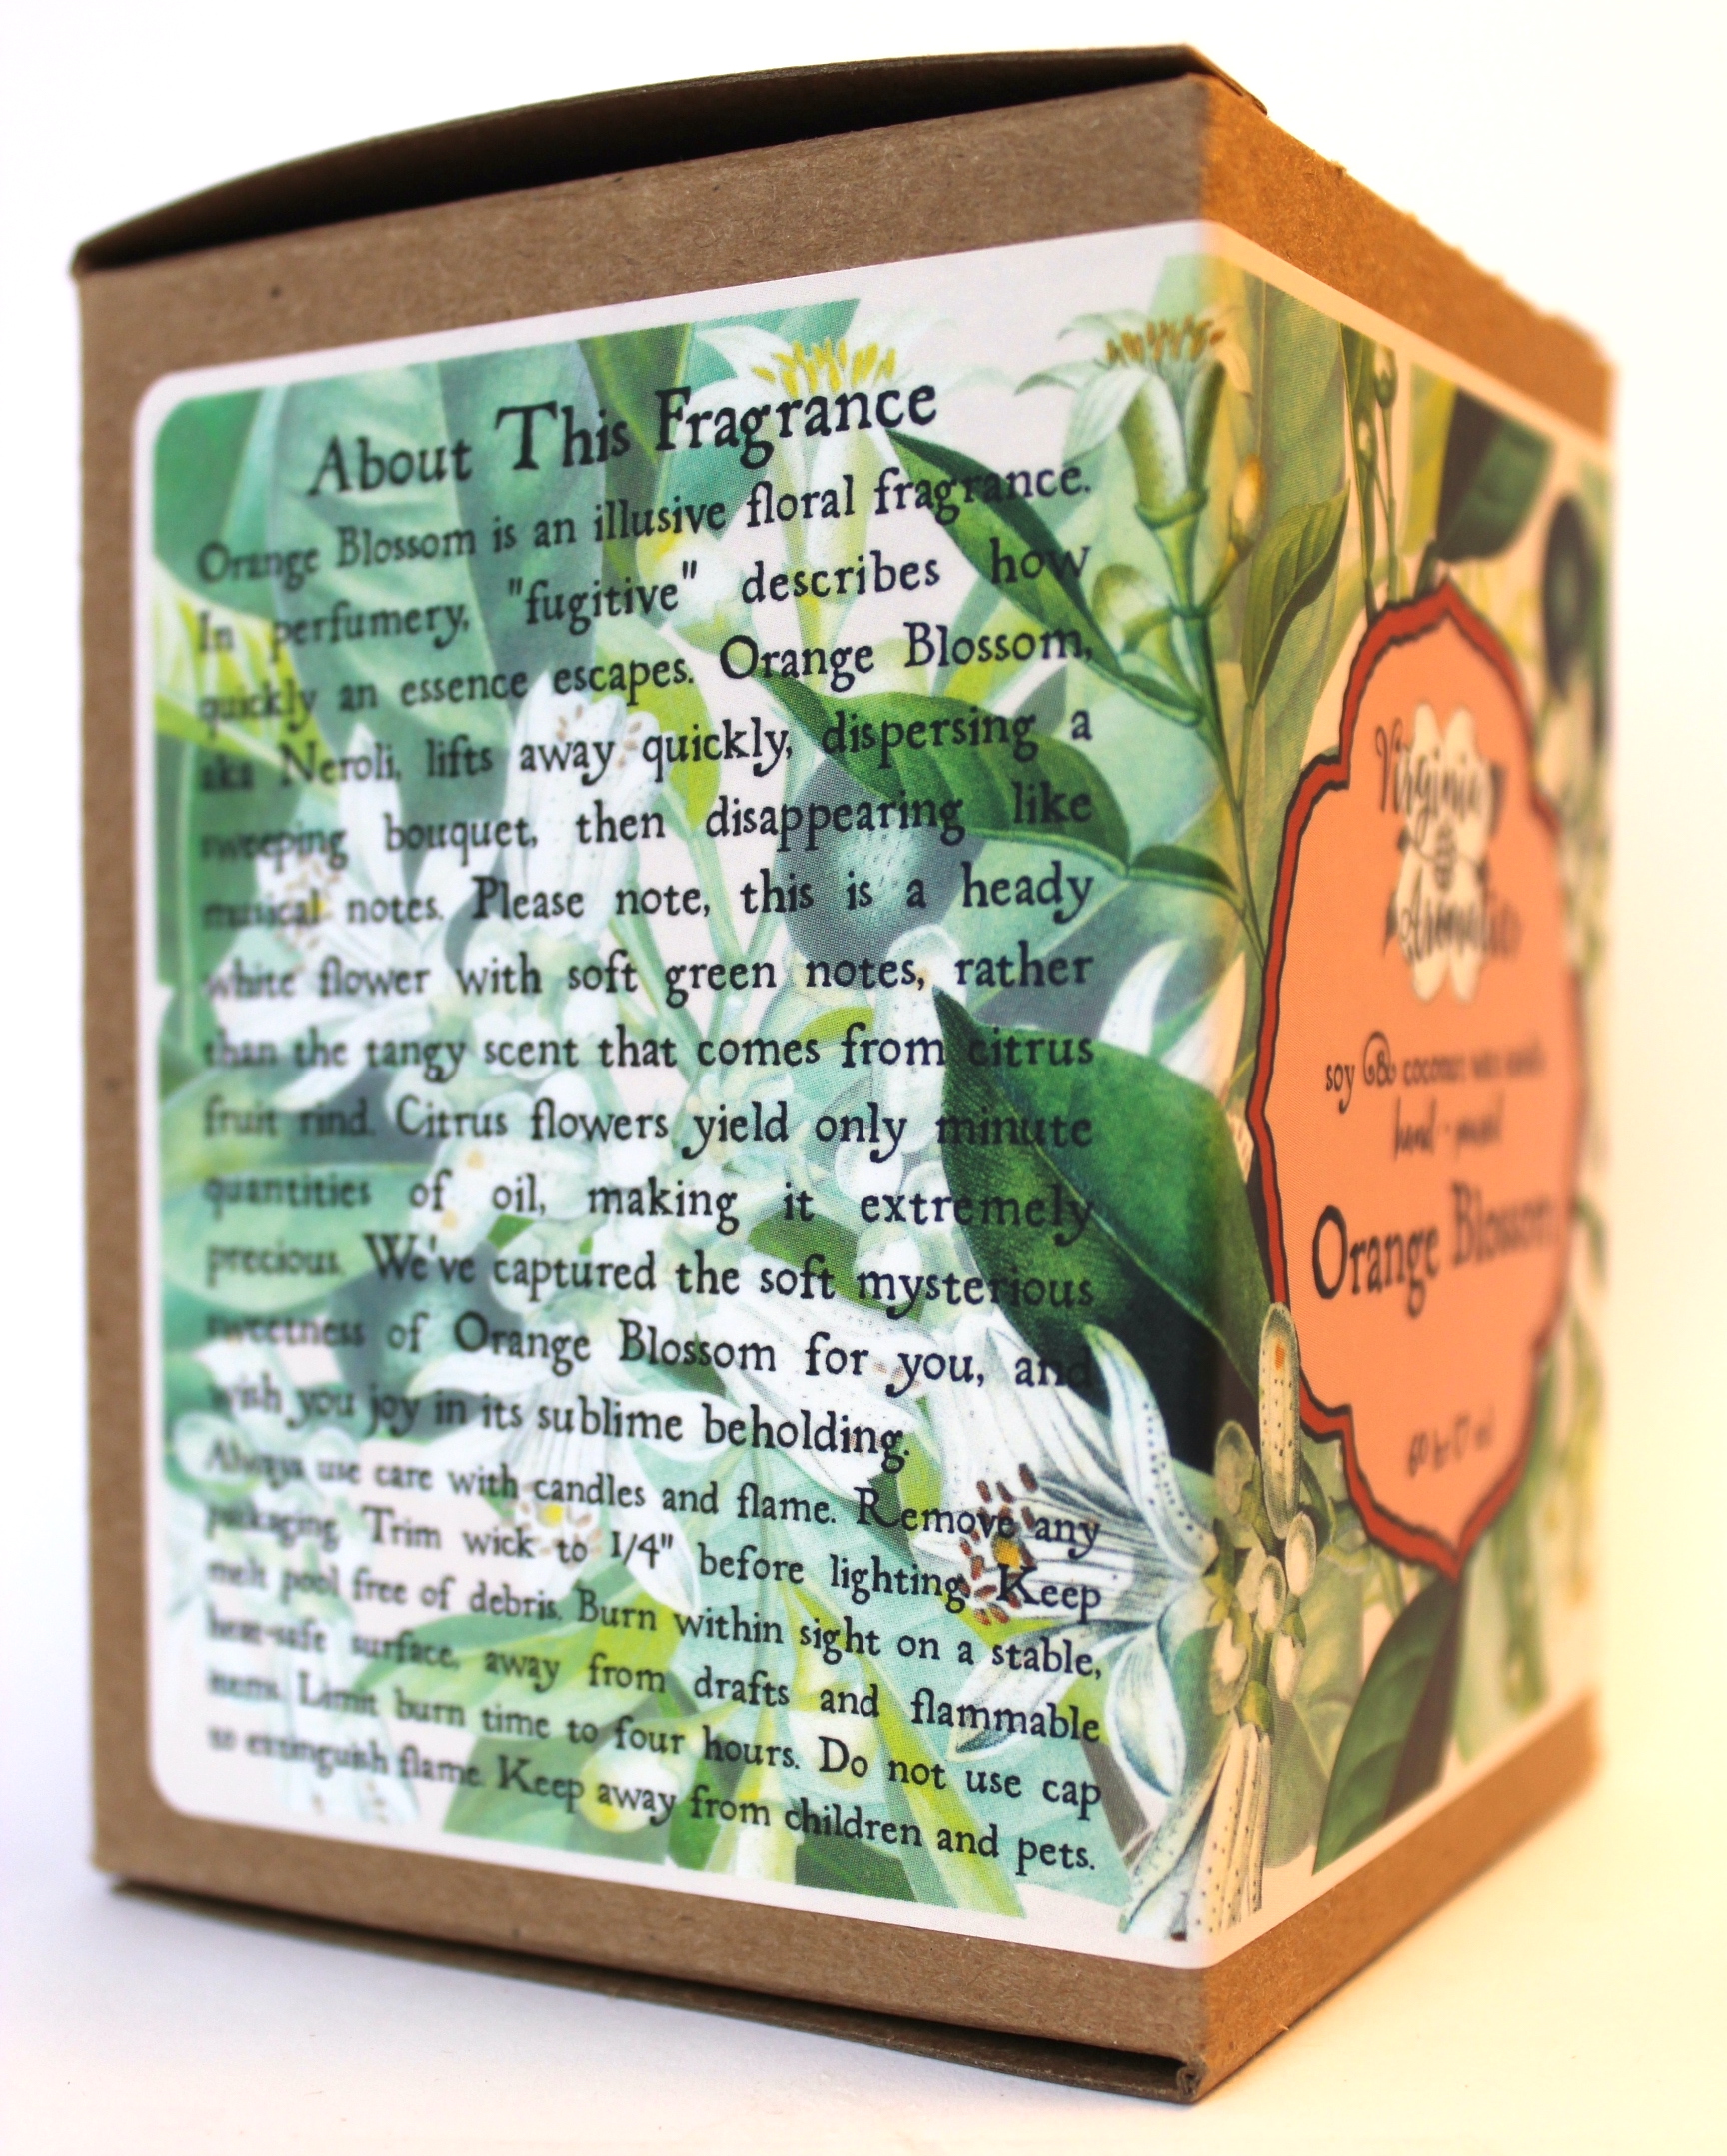 About This Fragrance
Orange Blossom is an illusive floral fragrance.
In perfumery, "fugitive" describes how
quickly an essence escapes. Orange Blossom,
aka Neroli, lifts away quickly, dispersing a
sweeping bouquet, then disappearing like
musical notes. Please note, this is a heady
white flower with soft green notes, rather
than the tangy scent that comes from citrus
fruit rind. Citrus flowers yield only minute
quantities of oil, making it extremely
precious. We've captured the soft mysterious
sweetness of Orange Blossom for you, and
wish you joy in its sublime beholding.
Always use care with candles and flame. Remove any
packaging. Trim wick to 1/4" before lighting. Keep
melt pool free of debris. Burn within sight on a stable,
heat-safe surface, away from drafts and flammable
items. Limit burn time to four hours. Do not use cap
to extinguish flame. Keep away from children and pets.
Virginia
Aromatics
soy & coconut wax candle
hand-poured
Orange Blossom
60 hr